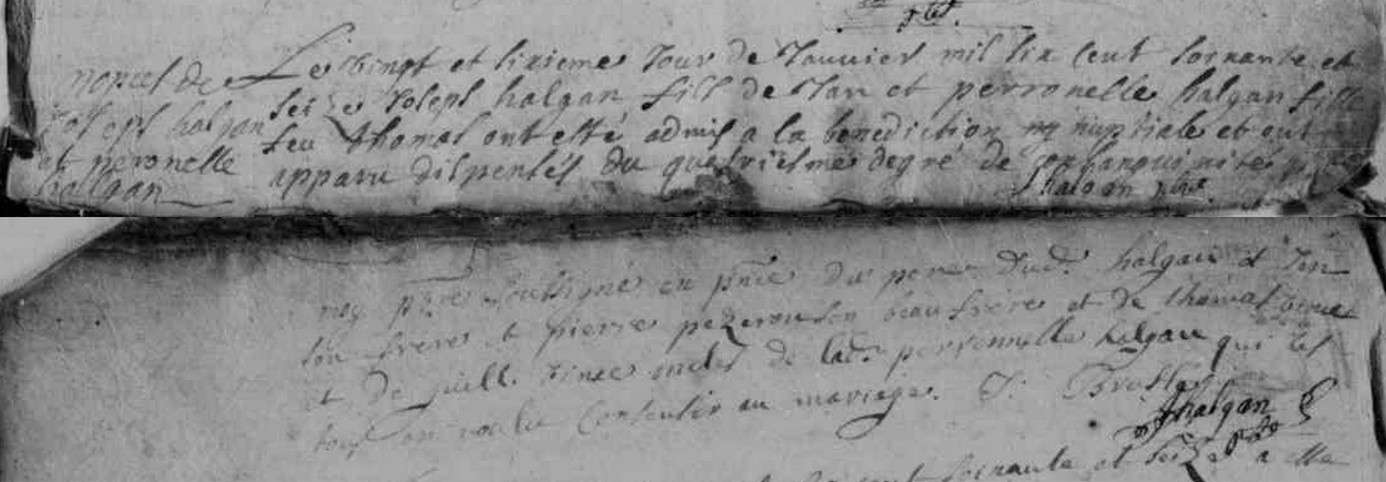 ptre.
nopces de
Joseph halgan
et peronelle
hallgan
Le vingt et sixieme Jour de Janvier mil six cent soixante et
seize Joseph halgan fill de Jan et perronelle halgan fille
feu thomas ont esté admis a la benediction nuptiale et ont
apparu dispensés du quatriesme degré de consanguinité
J halgan ptre
moy ptre soussigné en pnce du pere dud. halgan et Jan
son frere et pierre pezeron son beau frere et de thomas
et de guill. oncles de lad. perronnelle halgan qui les
tous ont voulu Consentir au mariage. J.
J halgan
ptre
cent soixante et seize a este